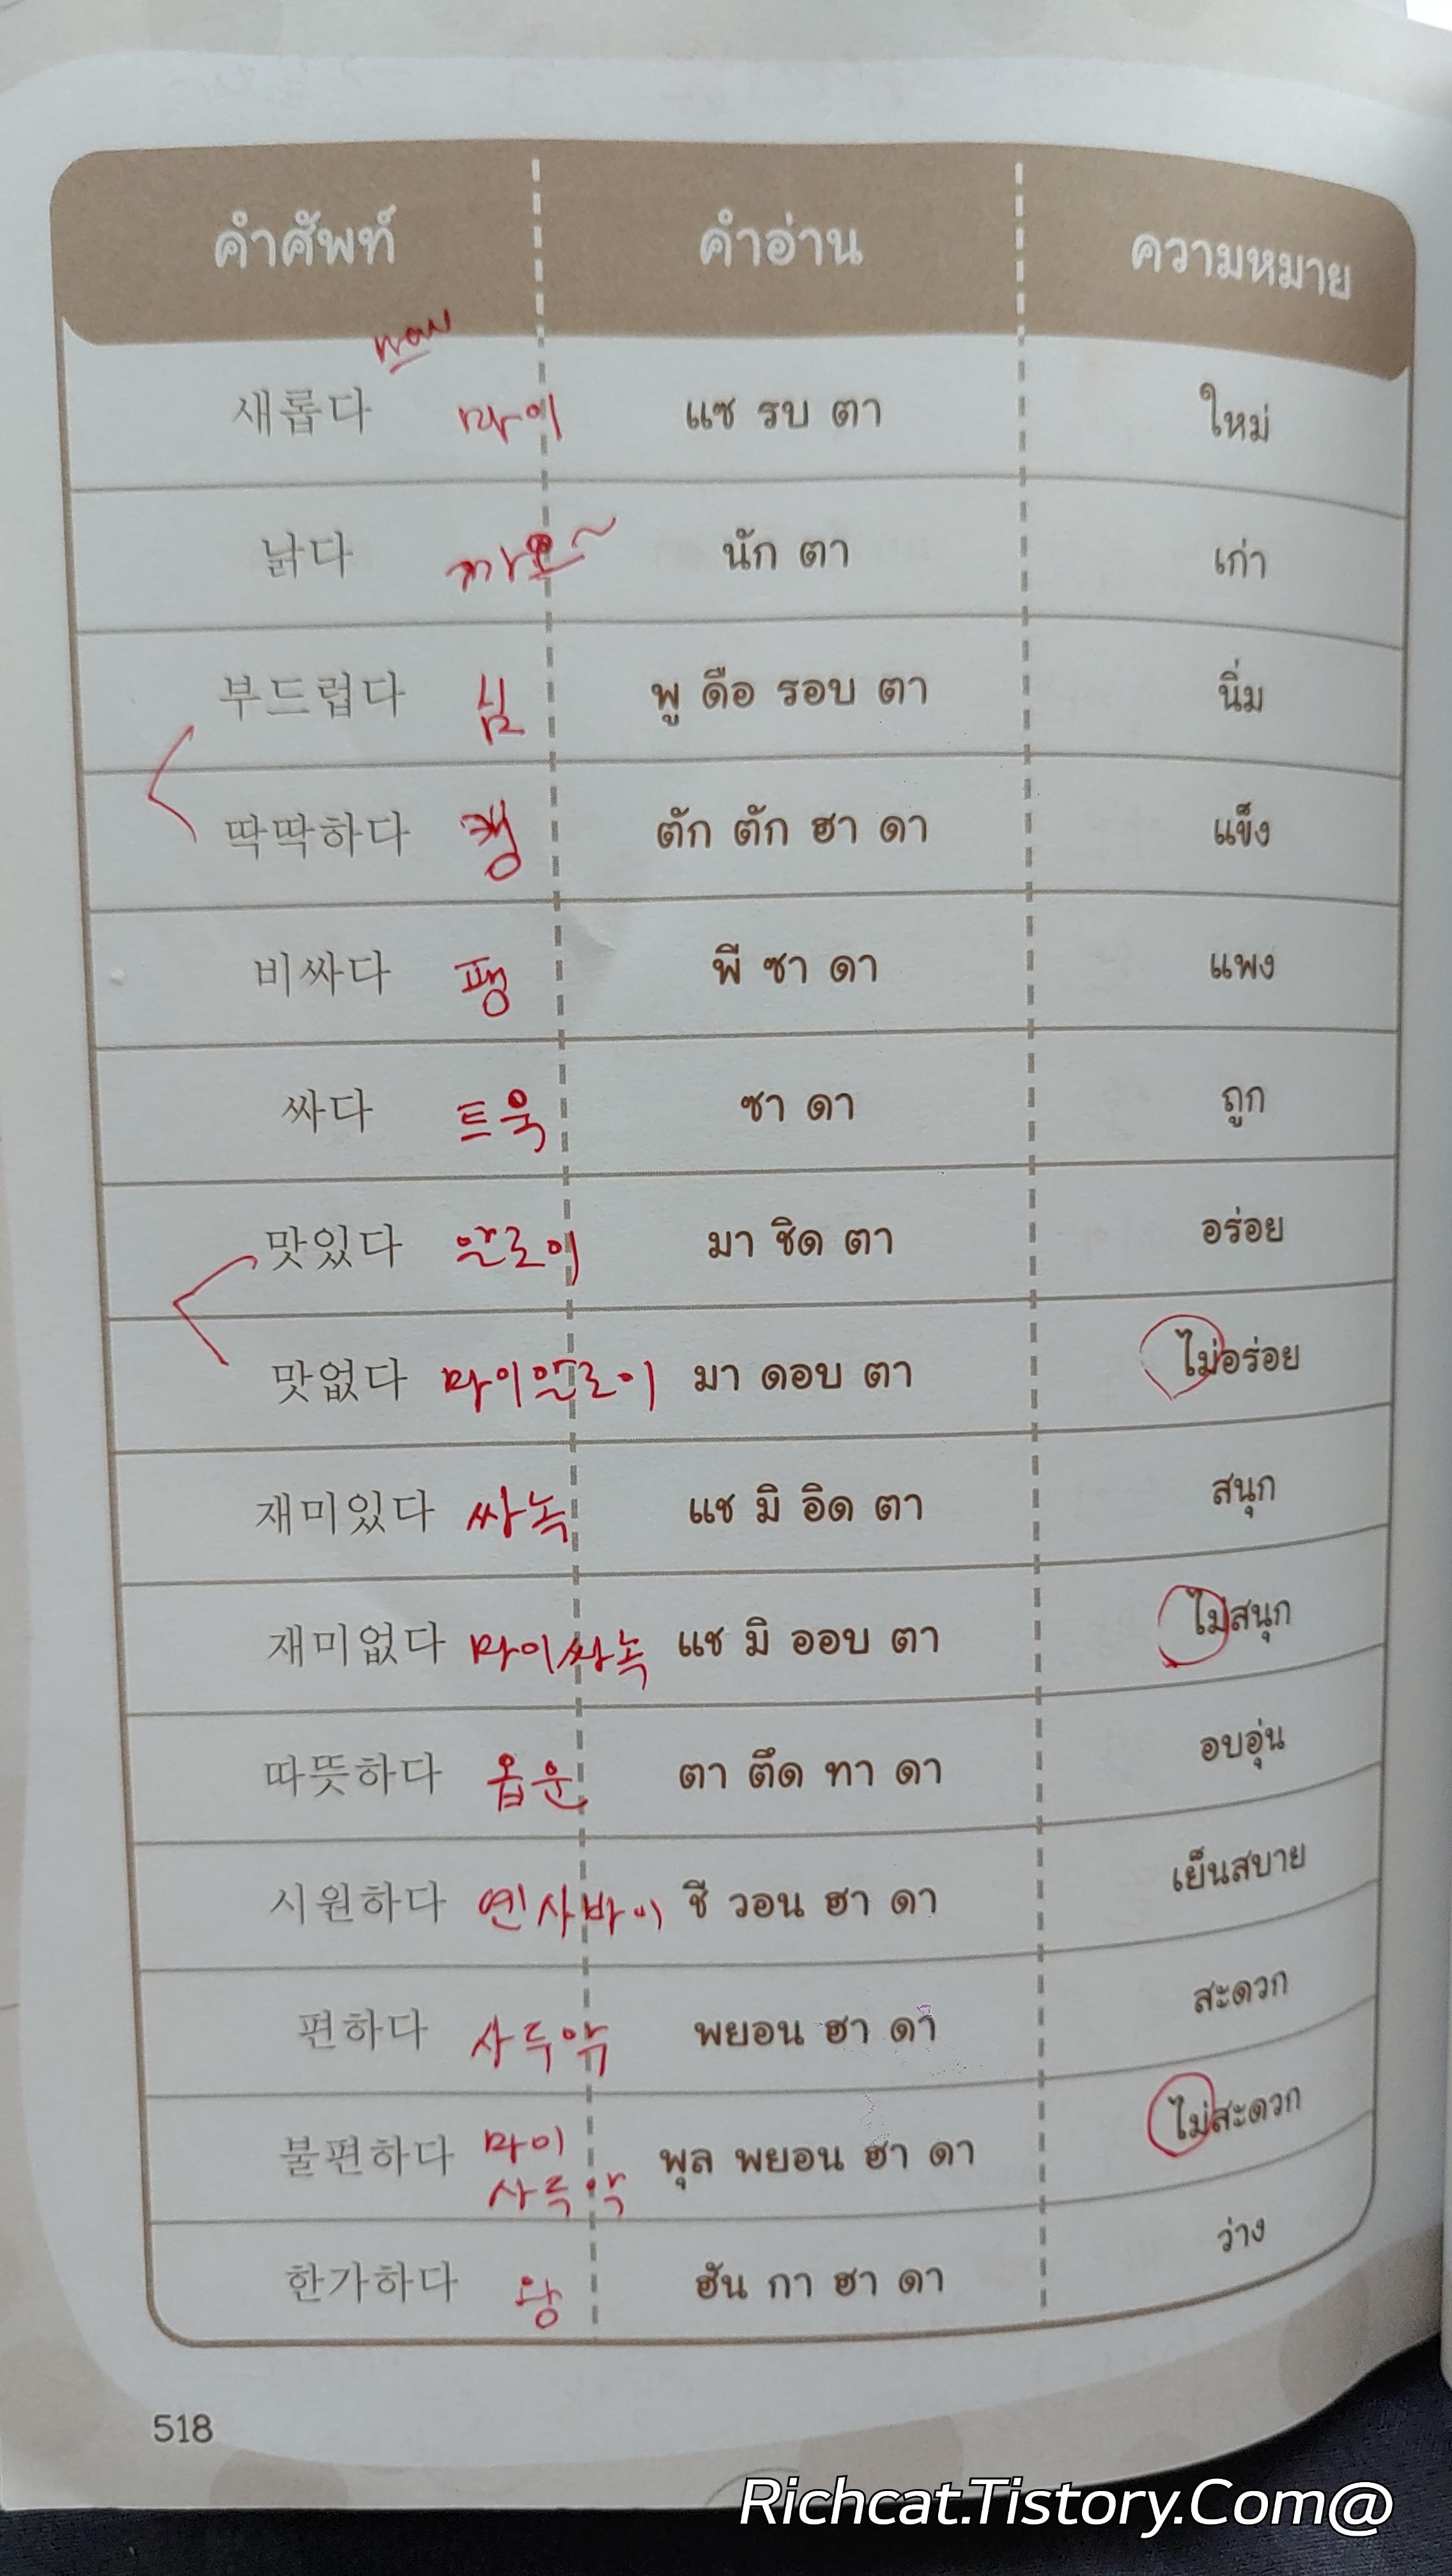 คำศัพท์ คำอ่าน ความหมาย
new
새롭다 마이 แซ รบ ตา ใหม่
낡다 까오~ นัก ตา เก่า
부드럽다 님 พู ดือ รอบ ตา นิ่ม
딱딱하다 캥 ตัก ตัก ฮา ดา แข็ง
비싸다 팽 พี ซา ดา แพง
싸다 트욱 ซา ดา ถูก
맛있다 알로이 มา ชิด ตา อร่อย
맛없다 마이알로이 มา ดอบ ตา ไม่อร่อย
재미있다 싸눅 แช มิ อิด ตา สนุก
재미없다 마이싸눅 แช มิ ออบ ตา ไม่สนุก
따뜻하다 옵운 ตา ตึด ทา ดา อบอุ่น
시원하다 옌사바이 ชี วอน ฮา ดา เย็นสบาย
편하다 사두악 พยอน ฮา ดา สะดวก
불편하다 마이 사두악 พุล พยอน ฮา ดา ไม่สะดวก
한가하다 왕 ฮัน กา ฮา ดา ว่าง
518
Richcat.Tistory.Com@